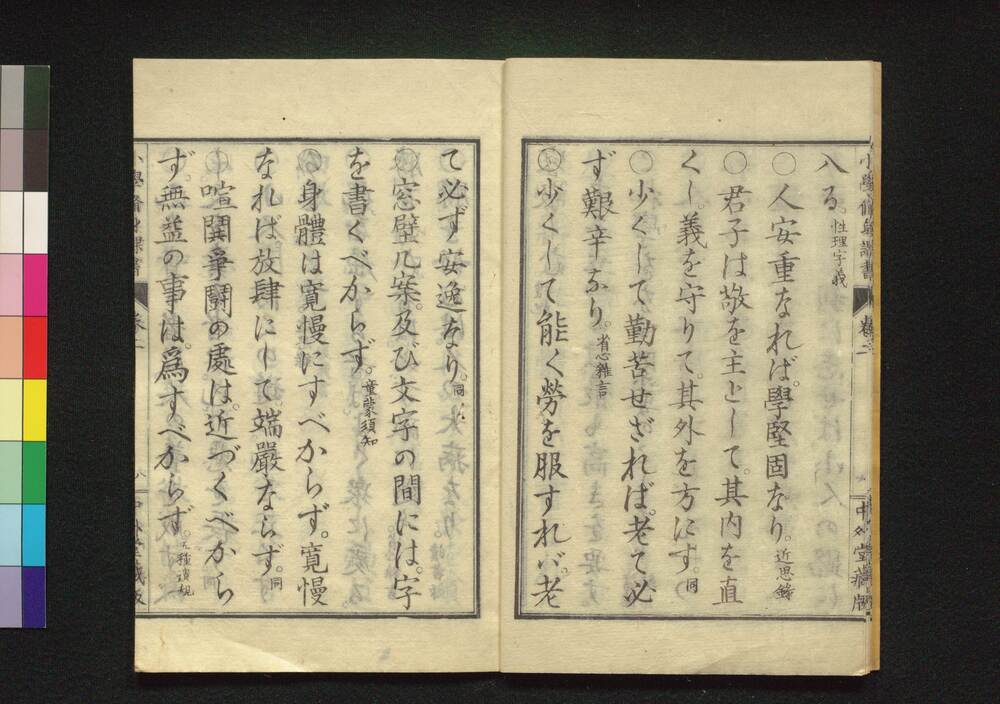 小學脩身課書 卷二 中外堂藏版
入る。性理字義
〇人安重なれば。學堅固なり。近思錄
〇君子は敬を主として。其内を直
くし。義を守りて。其外を方にす。同
〇少くして勤苦せざれば。老て必
ず艱辛なり。省心雜言
〇少くして能く勞を服すれバ。老
て必ず安逸なり。同
〇窓壁几案。及び文字の間には。字
を書くべからず。童蒙須知
〇身體は寛慢にすべからず。寛慢
なれば放肆にして端嚴ならず。同
〇喧鬨爭鬪の處は。近づくべから
ず。無益の事は。爲すべからず。